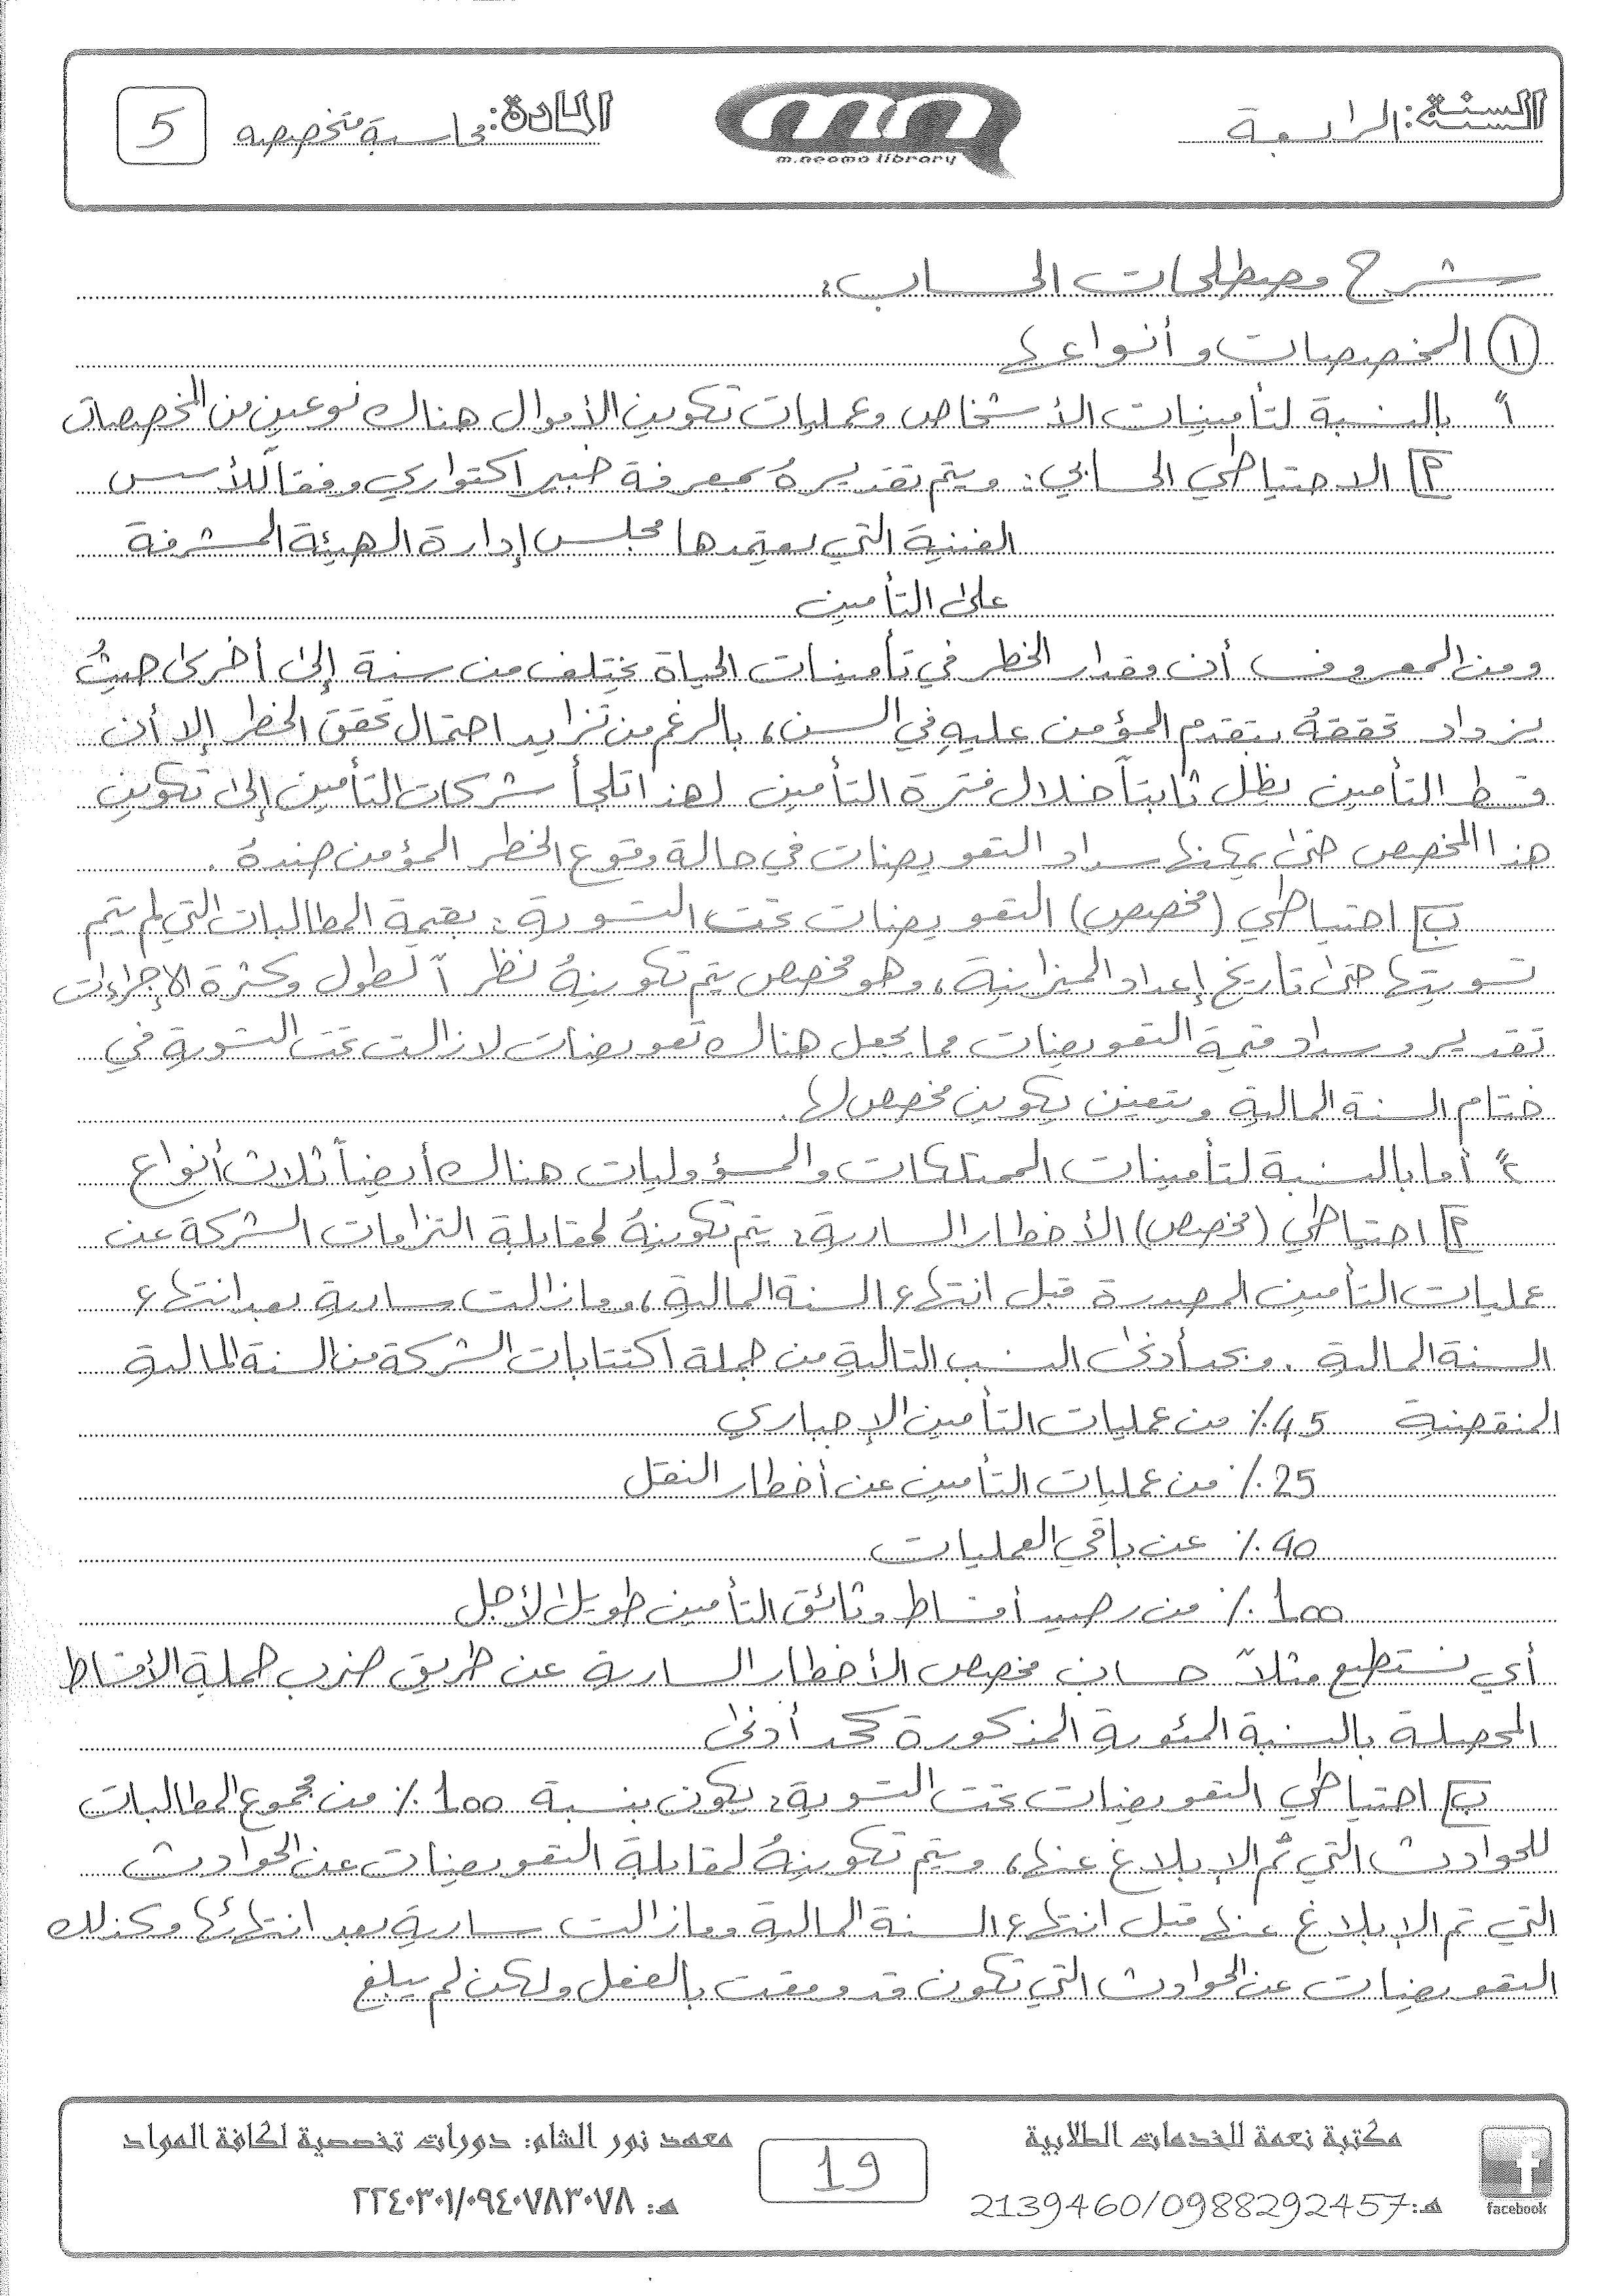 السنة: الرابعة
m.neama library
المادة: محاسبة متخصصة
5
شرح مصطلحات الحساب:
① المخصصات وأنواعها
أً بالنسبة لتأمينات الأشخاص وعمليات تكوين الأموال هناك نوعين من المخصصات
أ] الاحتياطي الحسابي: ويتم تقديرهُ بمعرفة خبير اكتواري وفقاً للأسس
الفنية التي يعتمدها مجلس إدارة الهيئة المشرفة
على التأمين
ومن المعروف أن مقدار الخطر في تأمينات الحياة يختلف من سنة إلى أخرى حيثُ
يزداد تحققهُ بتقدم المؤمن عليهِ في السن، بالرغم من تزايد احتمال تحقق الخطر إلا أن
قسط التأمين يظل ثابتاً خلال فترة التأمين لهذا تلجأ شركات التأمين إلى تكوين
هذا المخصص حتى يمكنها سداد التعويضات في حالة وقوع الخطر المؤمن ضدهُ.
ب] احتياطي (مخصص) التعويضات تحت التسوية: بقيمة المطالبات التي لم يتم
تسويتها حتى تاريخ إعداد الميزانية، وهو مخصص يتم تكوينهُ نظراً لطول وكثرة الإجراءات
تقدير وسداد قيمة التعويضات مما يجعل هناك تعويضات لازالت تحت التسوية في
ختام السنة المالية ويتعين تكوين مخصص لها.
2ً أما بالنسبة لتأمينات الممتلكات والمسؤوليات هناك أيضاً ثلاث أنواع
أ] احتياطي (مخصص) الأخطار السارية: يتم تكوينهُ لمقابلة التزامات الشركة عن
عمليات التأمين المصدرة قبل انتهاء السنة المالية، ومازالت سارية بعد انتهاء
السنة المالية. وبحد أدنى النسب التالية من جملة اكتتابات الشركة من السنة المالية
المنقضية 45٪ من عمليات التأمين الإجباري
25٪ من عمليات التأمين عن أخطار النقل
40٪ عن باقي العمليات
100٪ من رصيد أقساط وثائق التأمين طويل الأجل
أي نستطيع مثلاً حساب مخصص الأخطار السارية عن طريق ضرب جملة الأقساط
المحصلة بالنسبة المئوية المذكورة كحد أدنى
ب] احتياطي التعويضات تحت التسوية: يكون بنسبة 100٪ من مجموع المطالبات
للحوادث التي تم الإبلاغ عنها، ويتم تكوينهُ لمقابلة التعويضات عن الحوادث
التي تم الإبلاغ عنها قبل انتهاء السنة المالية ومازالت سارية بعد انتهائها وكذلك
التعويضات عن الحوادث التي تكون قد وقعت بالفعل ولكن لم يبلغ
مكتبة نعمة للخدمات الطلابية
هـ: 2139460/0988292457
facebook
19
معهد نور الشام: دورات تخصصية لكافة المواد
هـ: ٢٢٤٠٣٠١/٠٩٤٠٧٨٣٠٧٨